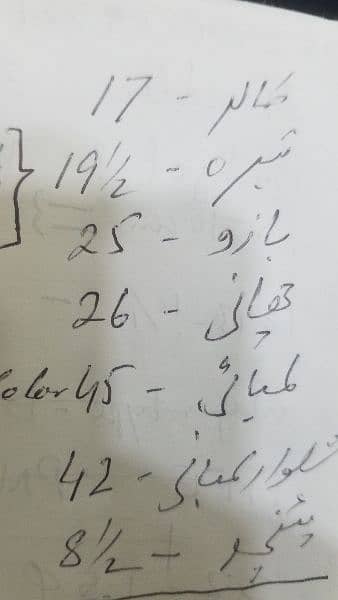 کالر - 17
تیرہ - 19½
بازو - 25
چھاتی - 26
لمبائی - 45 olor
شلوار لمبائی - 42
- 8½